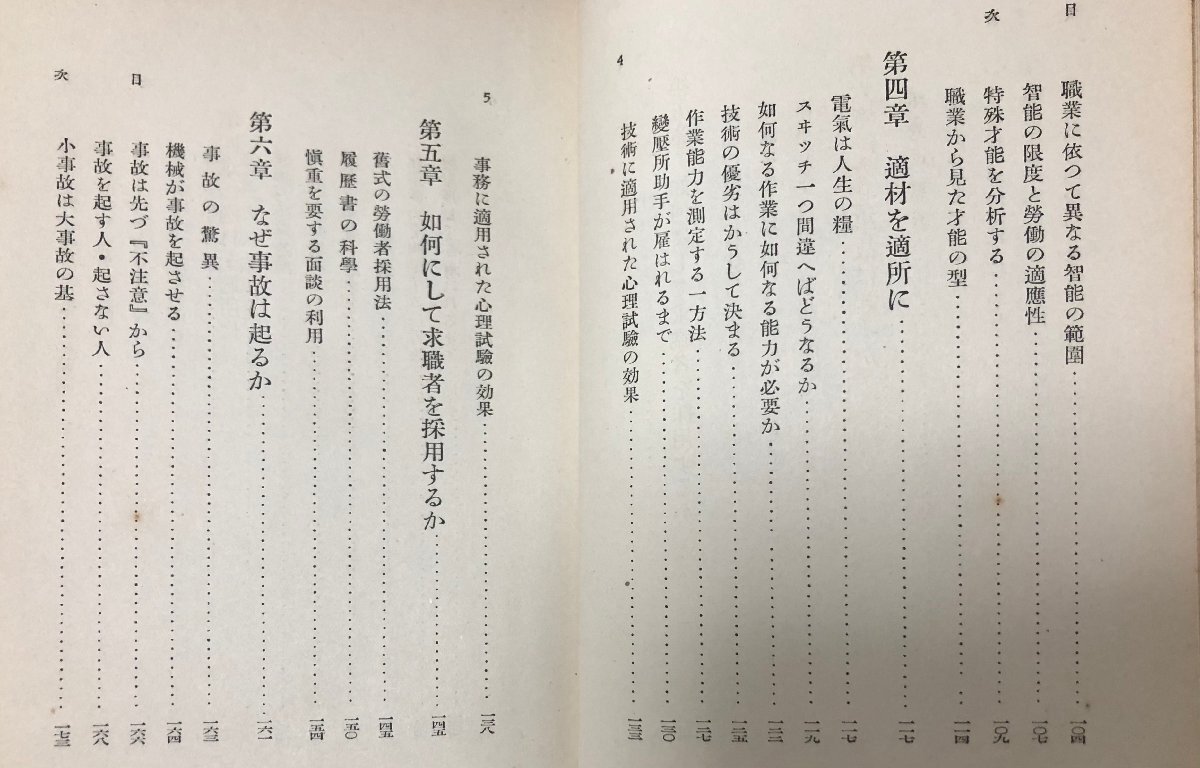 目次
職業に依つて異なる智能の範圍……一〇四
智能の限度と勞働の適應性……一〇七
特殊才能を分析する……一〇九
職業から見た才能の型……一一四
第四章 適材を適所に……一一七
電氣は人生の糧……一一七
スヰッチ一つ間違へばどうなるか……一一九
如何なる作業に如何なる能力が必要か……一二二
技術の優劣はかうして決まる……一二五
作業能力を測定する一方法……一二七
變壓所助手が雇はれるまで……一三〇
技術に適用された心理試驗の効果……一三三
4
5
事務に適用された心理試驗の効果……一三八
第五章 如何にして求職者を採用するか……一四五
舊式の勞働者採用法……一四五
履歷書の科學……一五〇
愼重を要する面談の利用……一五四
第六章 なぜ事故は起るか……一六一
事故の驚異……一六三
機械が事故を起させる……一六四
事故は先づ『不注意』から……一六六
事故を起す人・起さない人……一六八
小事故は大事故の基……一七三
目次